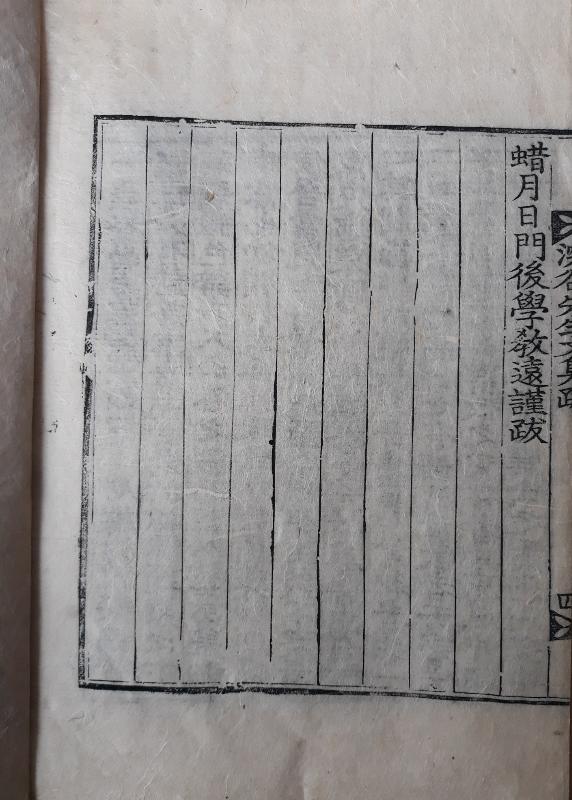 蜡月日門後學敎遠謹跋
谷先生文集跋
四